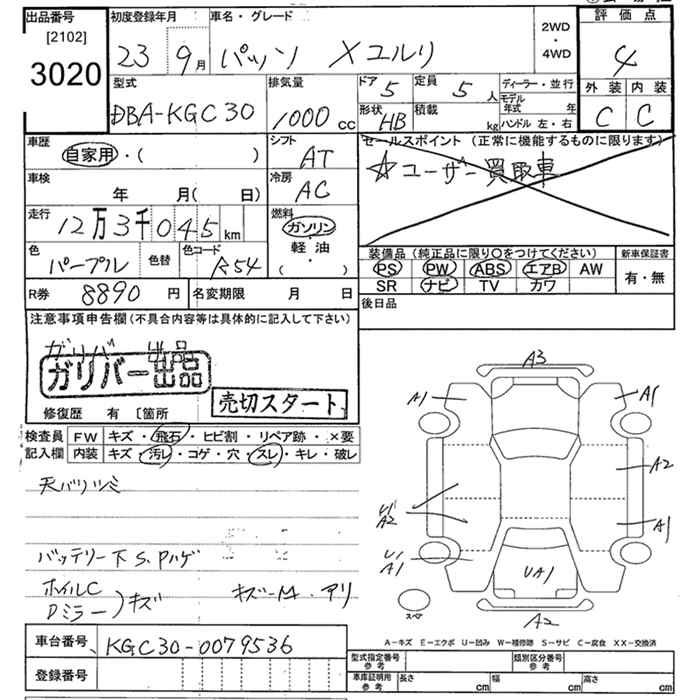 出品番号 初度登録年月 車名・グレード 2WD・4WD 評価点
[2102]
3020 23 9月 パッソ Xユルリ 4
型式 排気量 ドア 5 定員 5人 ディーラー・並行 外装 内装
DBA-KGC30 1000cc 形状 HB 積載 kg モデル年式 年 ハンドル 左・右 C C
車歴 自家用・( ) シフト AT セールスポイント (正常に機能するものに限ります)
☆ユーザー買取車
車検 年 月(日) 冷房 AC
走行 12万3千045km 燃料 ガソリン・軽油・( )
色 パープル 色替 色コード R54
装備品 (純正品に限り○をつけてください) 新車保証書
PS PW ABS エアB AW 有・無
SR ナビ TV カワ
R券 8890円 名変期限 月 日 後日品
注意事項申告欄(不具合内容等は具体的に記入して下さい)
ガリバー出品
ガリバー出品
売切スタート
修復歴 有 〔箇所
検査員記入欄 FW キズ・飛石・ヒビ割・リペア跡・×要
内装 キズ・汚レ・コゲ・穴・スレ・キレ・破レ
天バリツミ
バッテリー下S.Pハゲ
ホイルC
Dミラー)キズ
キズ-M・アリ
A3
A1 A1
A2
U1 A2 A1
U1 A1
UA1
A2
スペア
A-キズ E-エクボ U-凹み W-補修跡 S-サビ C-腐食 XX-交換済
車台番号 KGC30-0079536
登録番号
型式指定番号 参考 類別区分番号 参考
車庫証明用 参考 長さ cm 幅 cm 高さ cm